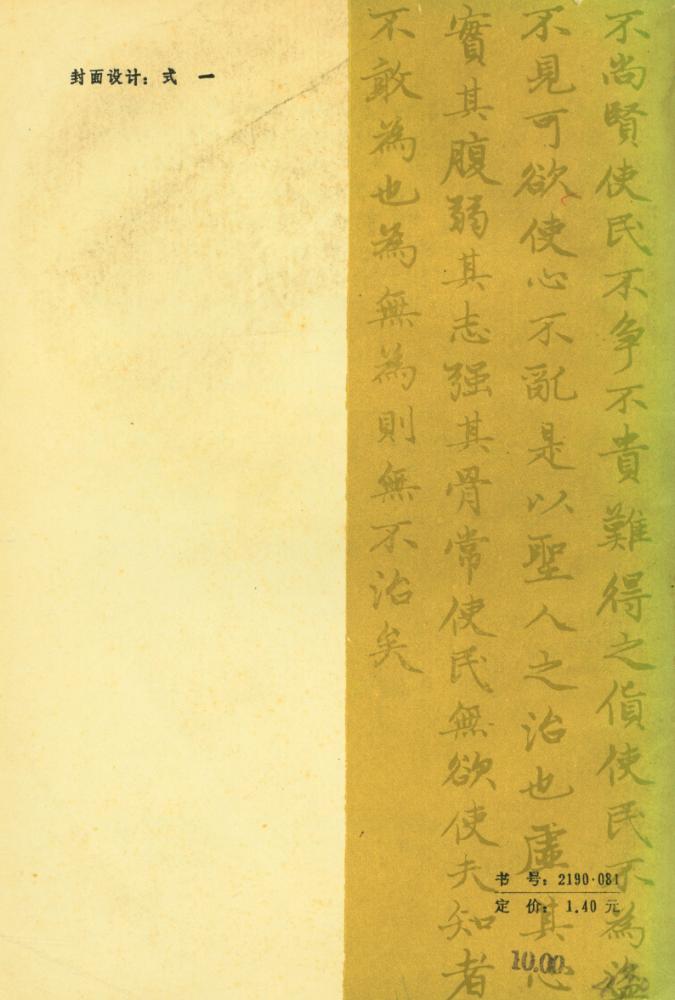 封面设计：式 一
不尚賢使民不争不貴難得之貨使民不為盜
不見可欲使心不亂是以聖人之治也虛其心
實其腹弱其志强其骨常使民無欲使夫知者
不敢為也為無為則無不治矣
书 号：2190·081
定 价：1.40 元
10.00